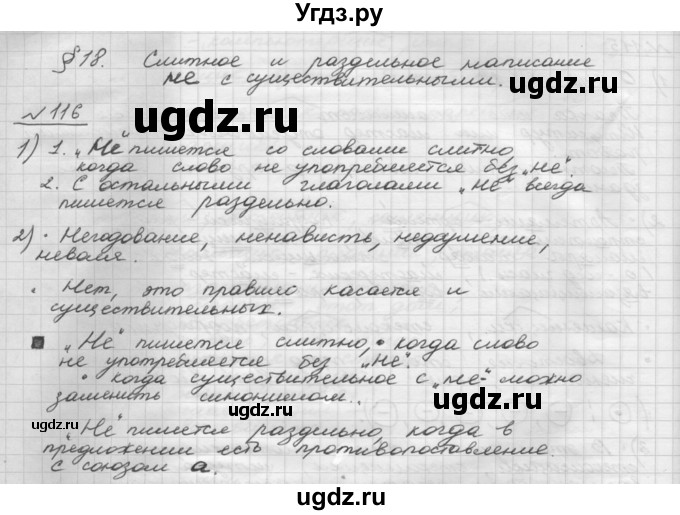 Угдз.ру
§ 18. Слитное и раздельное написание
не с существительными.
№ 116
ugdz.ru ugdz.ru
1) 1. „Не" пишется со словами слитно
когда слово не употребляется без „не".
2. С остальными глаголами „не" всегда
пишется раздельно.
ugdz.ru
2) • Негодование, ненависть, недоумение,
неваля.
• Нет, это правило касается и
существительных.
ugdz.ru
„Не" пишется слитно, • когда слово
не употребляется без „не".
• когда существительное с „не" можно
заменить синонимом.
ugdz.ru ugdz.ru
„Не" пишется раздельно, когда в
предложении есть противопоставление
с союзом а.
ugdz.ru
ugdz.ru